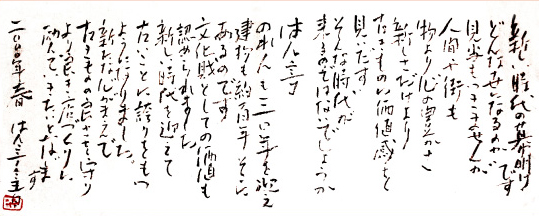 新しい時代の幕明け
どんな世になるのか
見当もつきませんが
人間や街も
物より心の豊かさ
新しさだけより
古いものに価値感を
見いだす
そんな時代が
来るのではないでしょうか
はん亭
のれんも二〇年を迎え
建物も約百年そこに
あるのです
文化財としての価値も
認められました
新しい時代を迎えて
古いことに誇りをもつ
ようになりました
新たな心がまえで
古きままの良さを守り
より良き店づくりに
励んでいきたいと思います
二〇〇〇年春 はん亭主